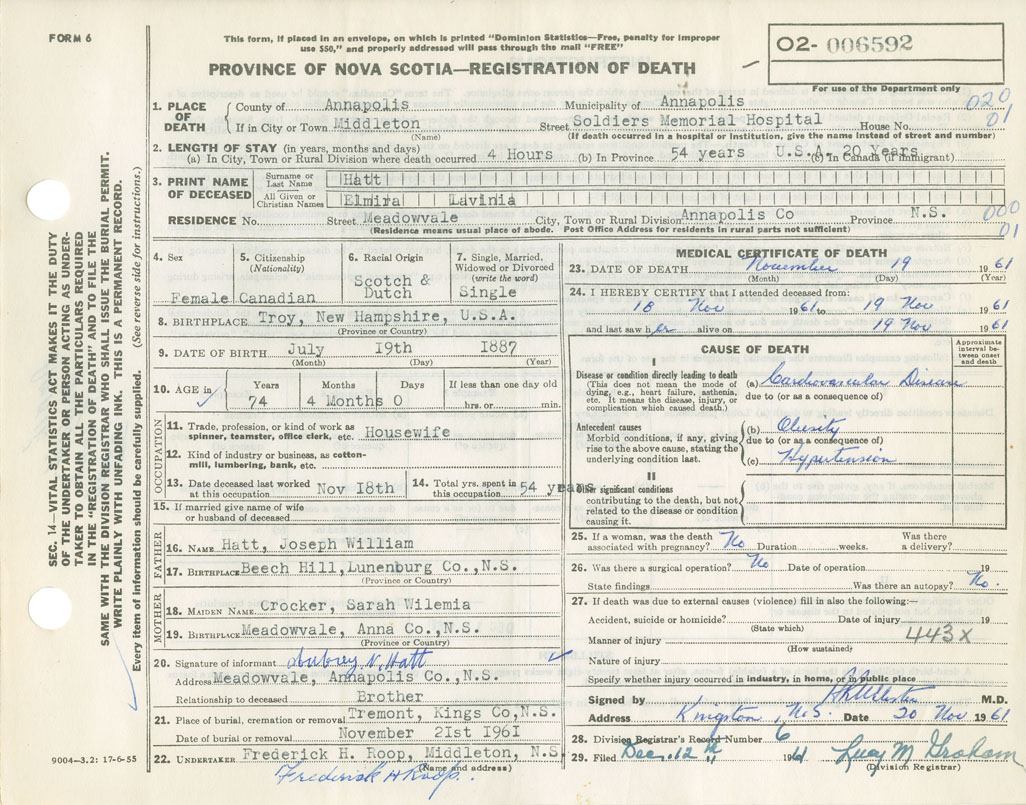 FORM 6
This form, if placed in an envelope, on which is printed "Dominion Statistics—Free, penalty for improper
use $50," and properly addressed will pass through the mail "FREE"
02- 006592
PROVINCE OF NOVA SCOTIA—REGISTRATION OF DEATH
For use of the Department only
1. PLACE OF DEATH County of Annapolis Municipality of Annapolis 020
If in City or Town Middleton Street Soldiers Memorial Hospital House No. 01
(Name) (If death occurred in a hospital or Institution, give the name instead of street and number)
2. LENGTH OF STAY (in years, months and days)
(a) In City, Town or Rural Division where death occurred 4 Hours (b) In Province 54 years U.S.A. 20 Years (c) In Canada (if immigrant)
3. PRINT NAME OF DECEASED Surname or Last Name Hatt
All Given or Christian Names Elmira Lavinia
RESIDENCE No. Street Meadowvale City, Town or Rural Division Annapolis Co Province N.S. 000
(Residence means usual place of abode. Post Office Address for residents in rural parts not sufficient) 01
4. Sex Female
5. Citizenship (Nationality) Canadian
6. Racial Origin Scotch & Dutch
7. Single, Married, Widowed or Divorced (write the word) Single
8. BIRTHPLACE Troy, New Hampshire, U.S.A.
(Province or Country)
9. DATE OF BIRTH July 19th 1887
(Month) (Day) (Year)
10. AGE in Years Months Days If less than one day old
74 4 Months 0 hrs. or min.
OCCUPATION
11. Trade, profession, or kind of work as spinner, teamster, office clerk, etc. Housewife
12. Kind of industry or business, as cotton-mill, lumbering, bank, etc.
13. Date deceased last worked at this occupation Nov 18th
14. Total yrs. spent in this occupation 54 years
15. If married give name of wife or husband of deceased
FATHER
16. NAME Hatt, Joseph William
17. BIRTHPLACE Beech Hill, Lunenburg Co., N.S.
(Province or Country)
MOTHER
18. MAIDEN NAME Crocker, Sarah Wilemia
19. BIRTHPLACE Meadowvale, Anna Co., N.S.
(Province or Country)
20. Signature of informant Aubrey N. Hatt
Address Meadowvale, Annapolis Co., N.S.
Relationship to deceased Brother
21. Place of burial, cremation or removal Tremont, Kings Co, N.S.
Date of burial or removal November 21st 1961
22. UNDERTAKER Frederick H. Roop, Middleton, N.S
(Name and address)
Frederick H Roop.
MEDICAL CERTIFICATE OF DEATH
23. DATE OF DEATH November 19 1961
(Month) (Day) (Year)
24. I HEREBY CERTIFY that I attended deceased from:
18 Nov 1961 to 19 Nov
and last saw her alive on 19 Nov 1961
CAUSE OF DEATH
Approximate interval between onset and death
I
Disease or condition directly leading to death
(This does not mean the mode of dying, e.g., heart failure, asthenia, etc. It means the disease, injury, or complication which caused death.)
(a) Cardiovascular Disease
due to (or as a consequence of)
Antecedent causes
Morbid conditions, if any, giving rise to the above cause, stating the underlying condition last.
(b) Obesity
due to (or as a consequence of)
(c) Hypertension
II
Other significant conditions
contributing to the death, but not related to the disease or condition causing it.
25. If a woman, was the death associated with pregnancy? No Duration weeks. Was there a delivery?
26. Was there a surgical operation? No Date of operation 19
State findings Was there an autopsy? No.
27. If death was due to external causes (violence) fill in also the following:—
Accident, suicide or homicide? Date of injury 19
(State which)
Manner of injury 443X
(How sustained)
Nature of injury
Specify whether injury occurred in industry, in home, or in public place
Signed by M.D.
Address Kingston, N.S. Date 20 Nov 1961
28. Division Registrar's Record Number 6
29. Filed Dec. 12th 1961 Lucy M Graham
(Division Registrar)
SEC. 14—VITAL STATISTICS ACT MAKES IT THE DUTY
OF THE UNDERTAKER OR PERSON ACTING AS UNDER-
TAKER TO OBTAIN ALL THE PARTICULARS REQUIRED
IN THE "REGISTRATION OF DEATH" AND TO FILE THE
SAME WITH THE DIVISION REGISTRAR WHO SHALL ISSUE THE BURIAL PERMIT.
WRITE PLAINLY WITH UNFADING INK. THIS IS A PERMANENT RECORD.
Every item of information should be carefully supplied. (See reverse side for instructions.)
9004—3.2: 17-6-55